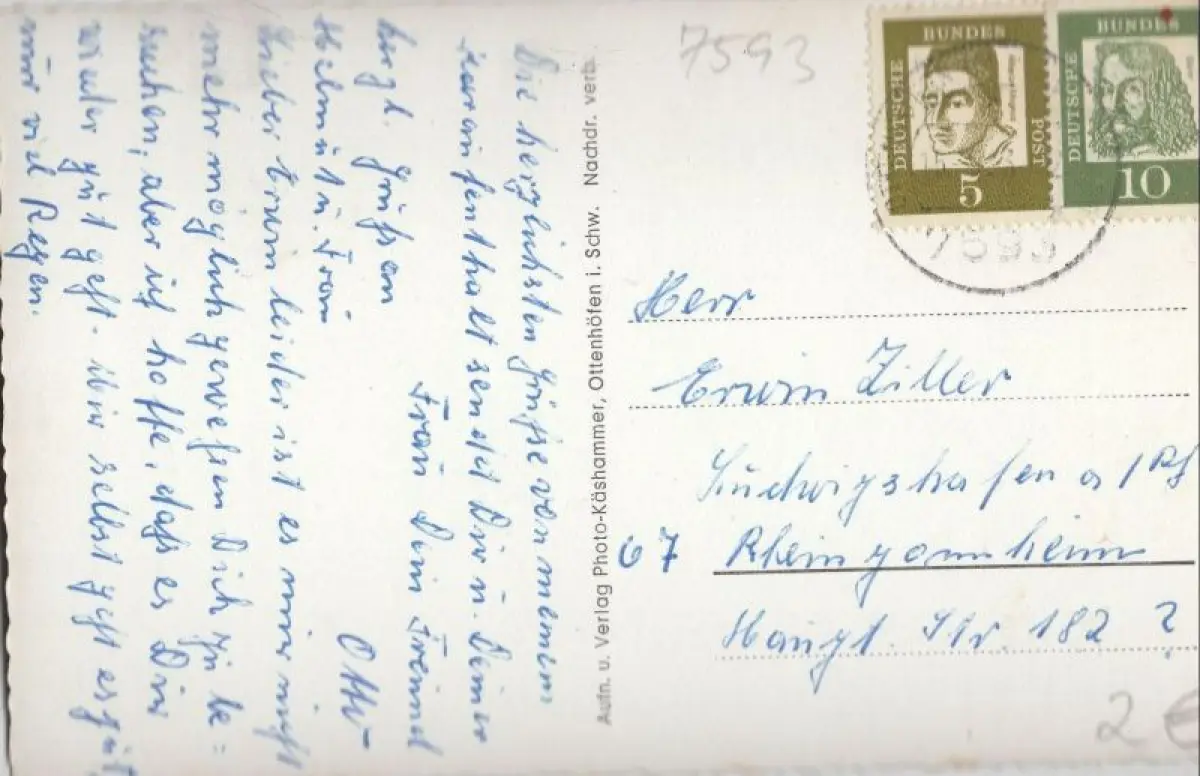 Die herzlichsten Grüße von meinem
sendet Dir u. Deiner
Frau Dein Freund
Otto
herzl. Grüße an
Helmut u. Frau
Lieber Erwin leider ist es mir nicht
mehr möglich gewesen Dich zu be=
suchen, aber ich hoffe, daß es Dir
wieder gut geht. Mir selbst geht es gut,
nur viel Regen.
Aufn. u. Verlag Photo-Käshammer, Ottenhöfen i. Schw. Nachdr. verb.
7593
DEUTSCHE BUNDES POST
5
DEUTSCHE BUNDES
10
7593
Herr
Erwin Ziller
Ludwigshafen a/Rh
67 Rheingönheim
Haupt. Str. 182 ?
2